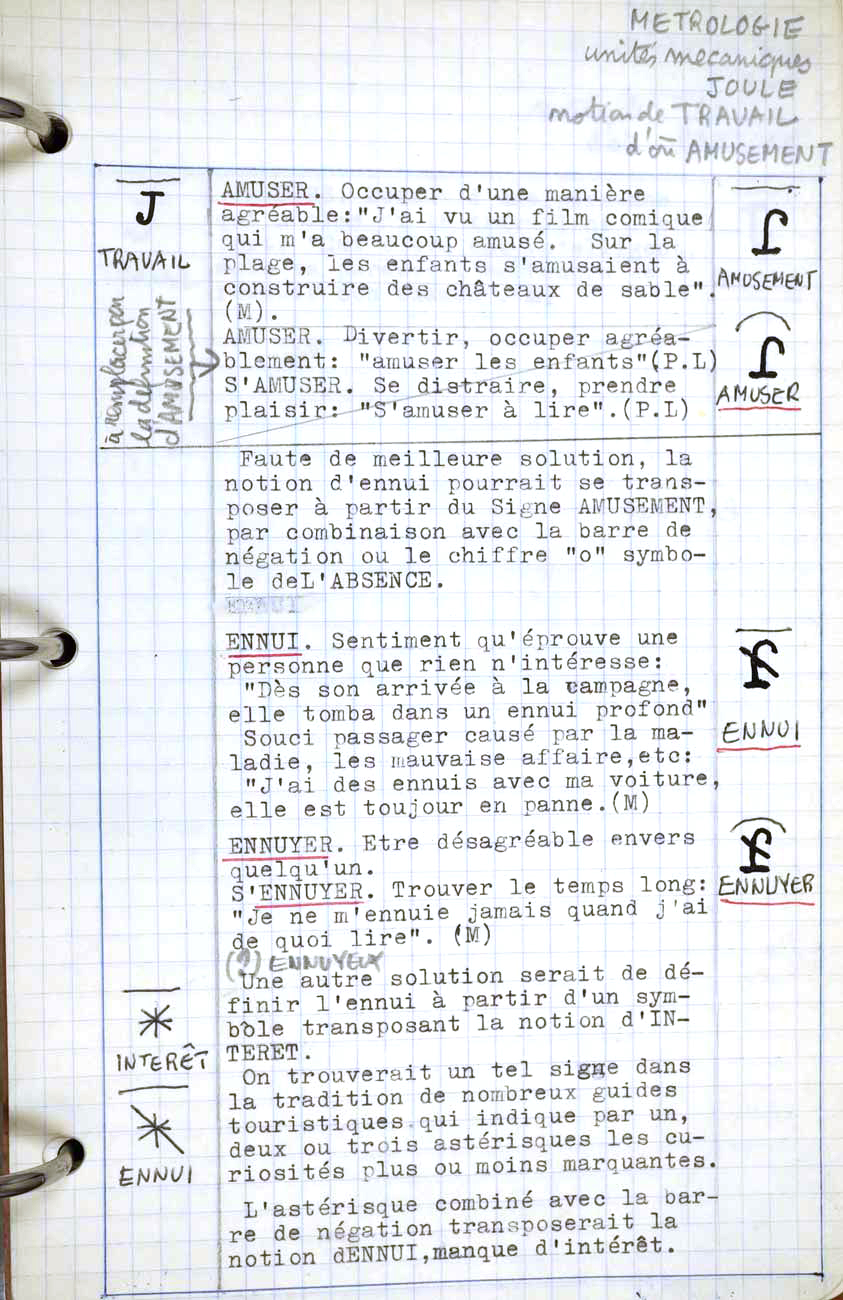 METROLOGIE
unités mecaniques
JOULE
notion de TRAVAIL
d'où AMUSEMENT
J
TRAVAIL
à remplacer par
la definition
d'AMUSEMENT
AMUSER. Occuper d'une manière
agréable:"J'ai vu un film comique
qui m'a beaucoup amusé. Sur la
plage, les enfants s'amusaient à
construire des châteaux de sable".
(M).
AMUSER. Divertir, occuper agréa-
blement: "amuser les enfants"(P.L)
S'AMUSER. Se distraire, prendre
plaisir: "S'amuser à lire".(P.L)
AMUSEMENT
AMUSER
Faute de meilleure solution, la
notion d'ennui pourrait se trans-
poser à partir du Signe AMUSEMENT,
par combinaison avec la barre de
négation ou le chiffre "o" symbo-
le deL'ABSENCE.
ENNUI
ENNUI. Sentiment qu'éprouve une
personne que rien n'intéresse:
"Dès son arrivée à la campagne,
elle tomba dans un ennui profond"
Souci passager causé par la ma-
ladie, les mauvaise affaire,etc:
"J'ai des ennuis avec ma voiture,
elle est toujour en panne.(M)
ENNUI
ENNUYER. Etre désagréable envers
quelqu'un.
S'ENNUYER. Trouver le temps long:
"Je ne m'ennuie jamais quand j'ai
de quoi lire". (M)
ENNUYER
(?) ENNUYEUX
Une autre solution serait de dé-
finir l'ennui à partir d'un sym-
bole transposant la notion d'IN-
TERET.
On trouverait un tel signe dans
la tradition de nombreux guides
touristiques qui indique par un,
deux ou trois astérisques les cu-
riosités plus ou moins marquantes.
L'astérisque combiné avec la bar-
re de négation transposerait la
notion dENNUI,manque d'intérêt.
INTERÊT
ENNUI